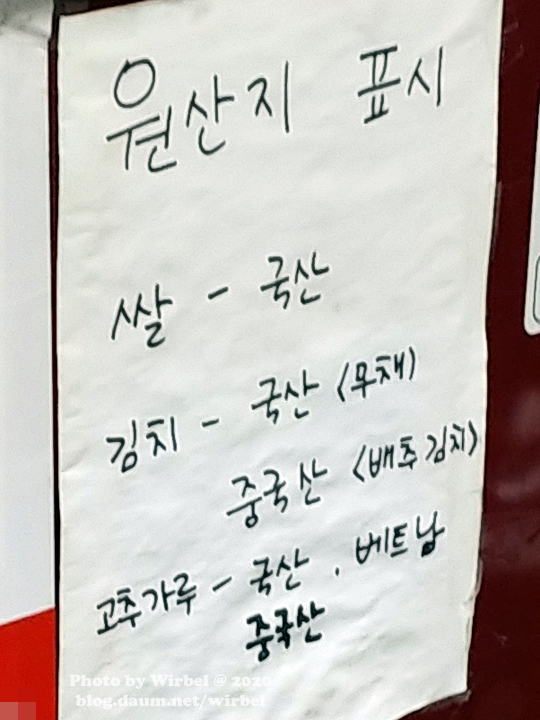 원산지 표시
쌀 - 국산
김치 - 국산 <무채>
중국산 <배추김치>
고추가루 - 국산 . 베트남
중국산
Photo by Wirbel @ 2020
blog.daum.net/wirbel